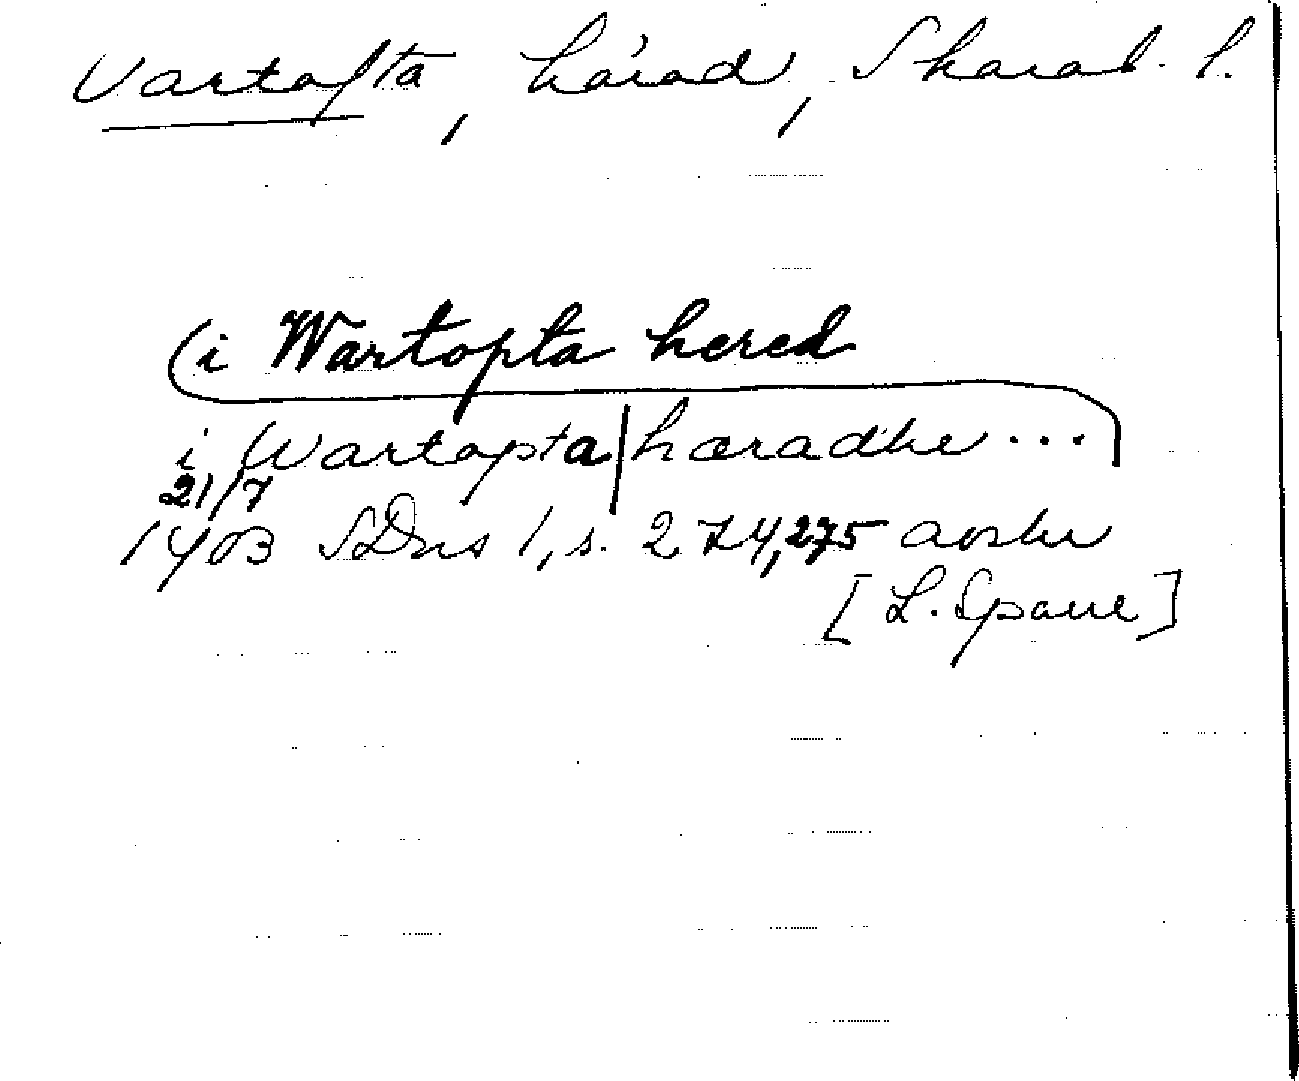 Vartofta, härad, Skarab. l.
(i Wartopta hered
i Wartopta|hæradhe ...
21/7
1403 SDns 1, s. 274,275 avskr
[L. Sparre]